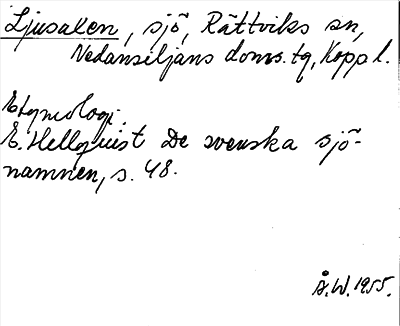 Ljusaken, sjö, Rättviks sn,
Nedansiljans doms. tg, Kopp l.
Etymologi:
E. Hellquist De svenska sjö-
namnen, s. 48.
Å.W. 1955.